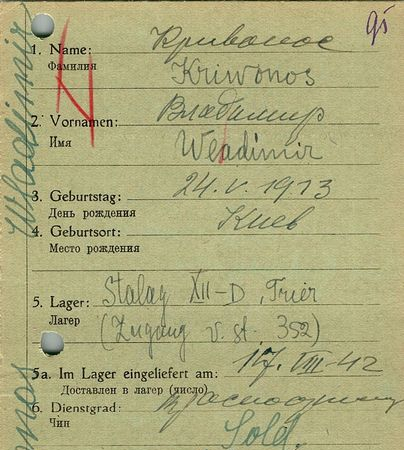 95
Кривонос
1. Name:
Фамилия
Kriwonos
Владимир
2. Vornamen:
Имя
Wladimir
3. Geburtstag: 24. V. 1913
День рождения
Киев
4. Geburtsort:
Место рождения
5. Lager: Stalag XII-D, Trier
Лагерь
(Zugang v. St. 352)
5a. Im Lager eingeliefert am: 17. VIII. 42
Доставлен в лагерь (число)
Красноармеец
6. Dienstgrad:
Чин
Sold.
Wladimir